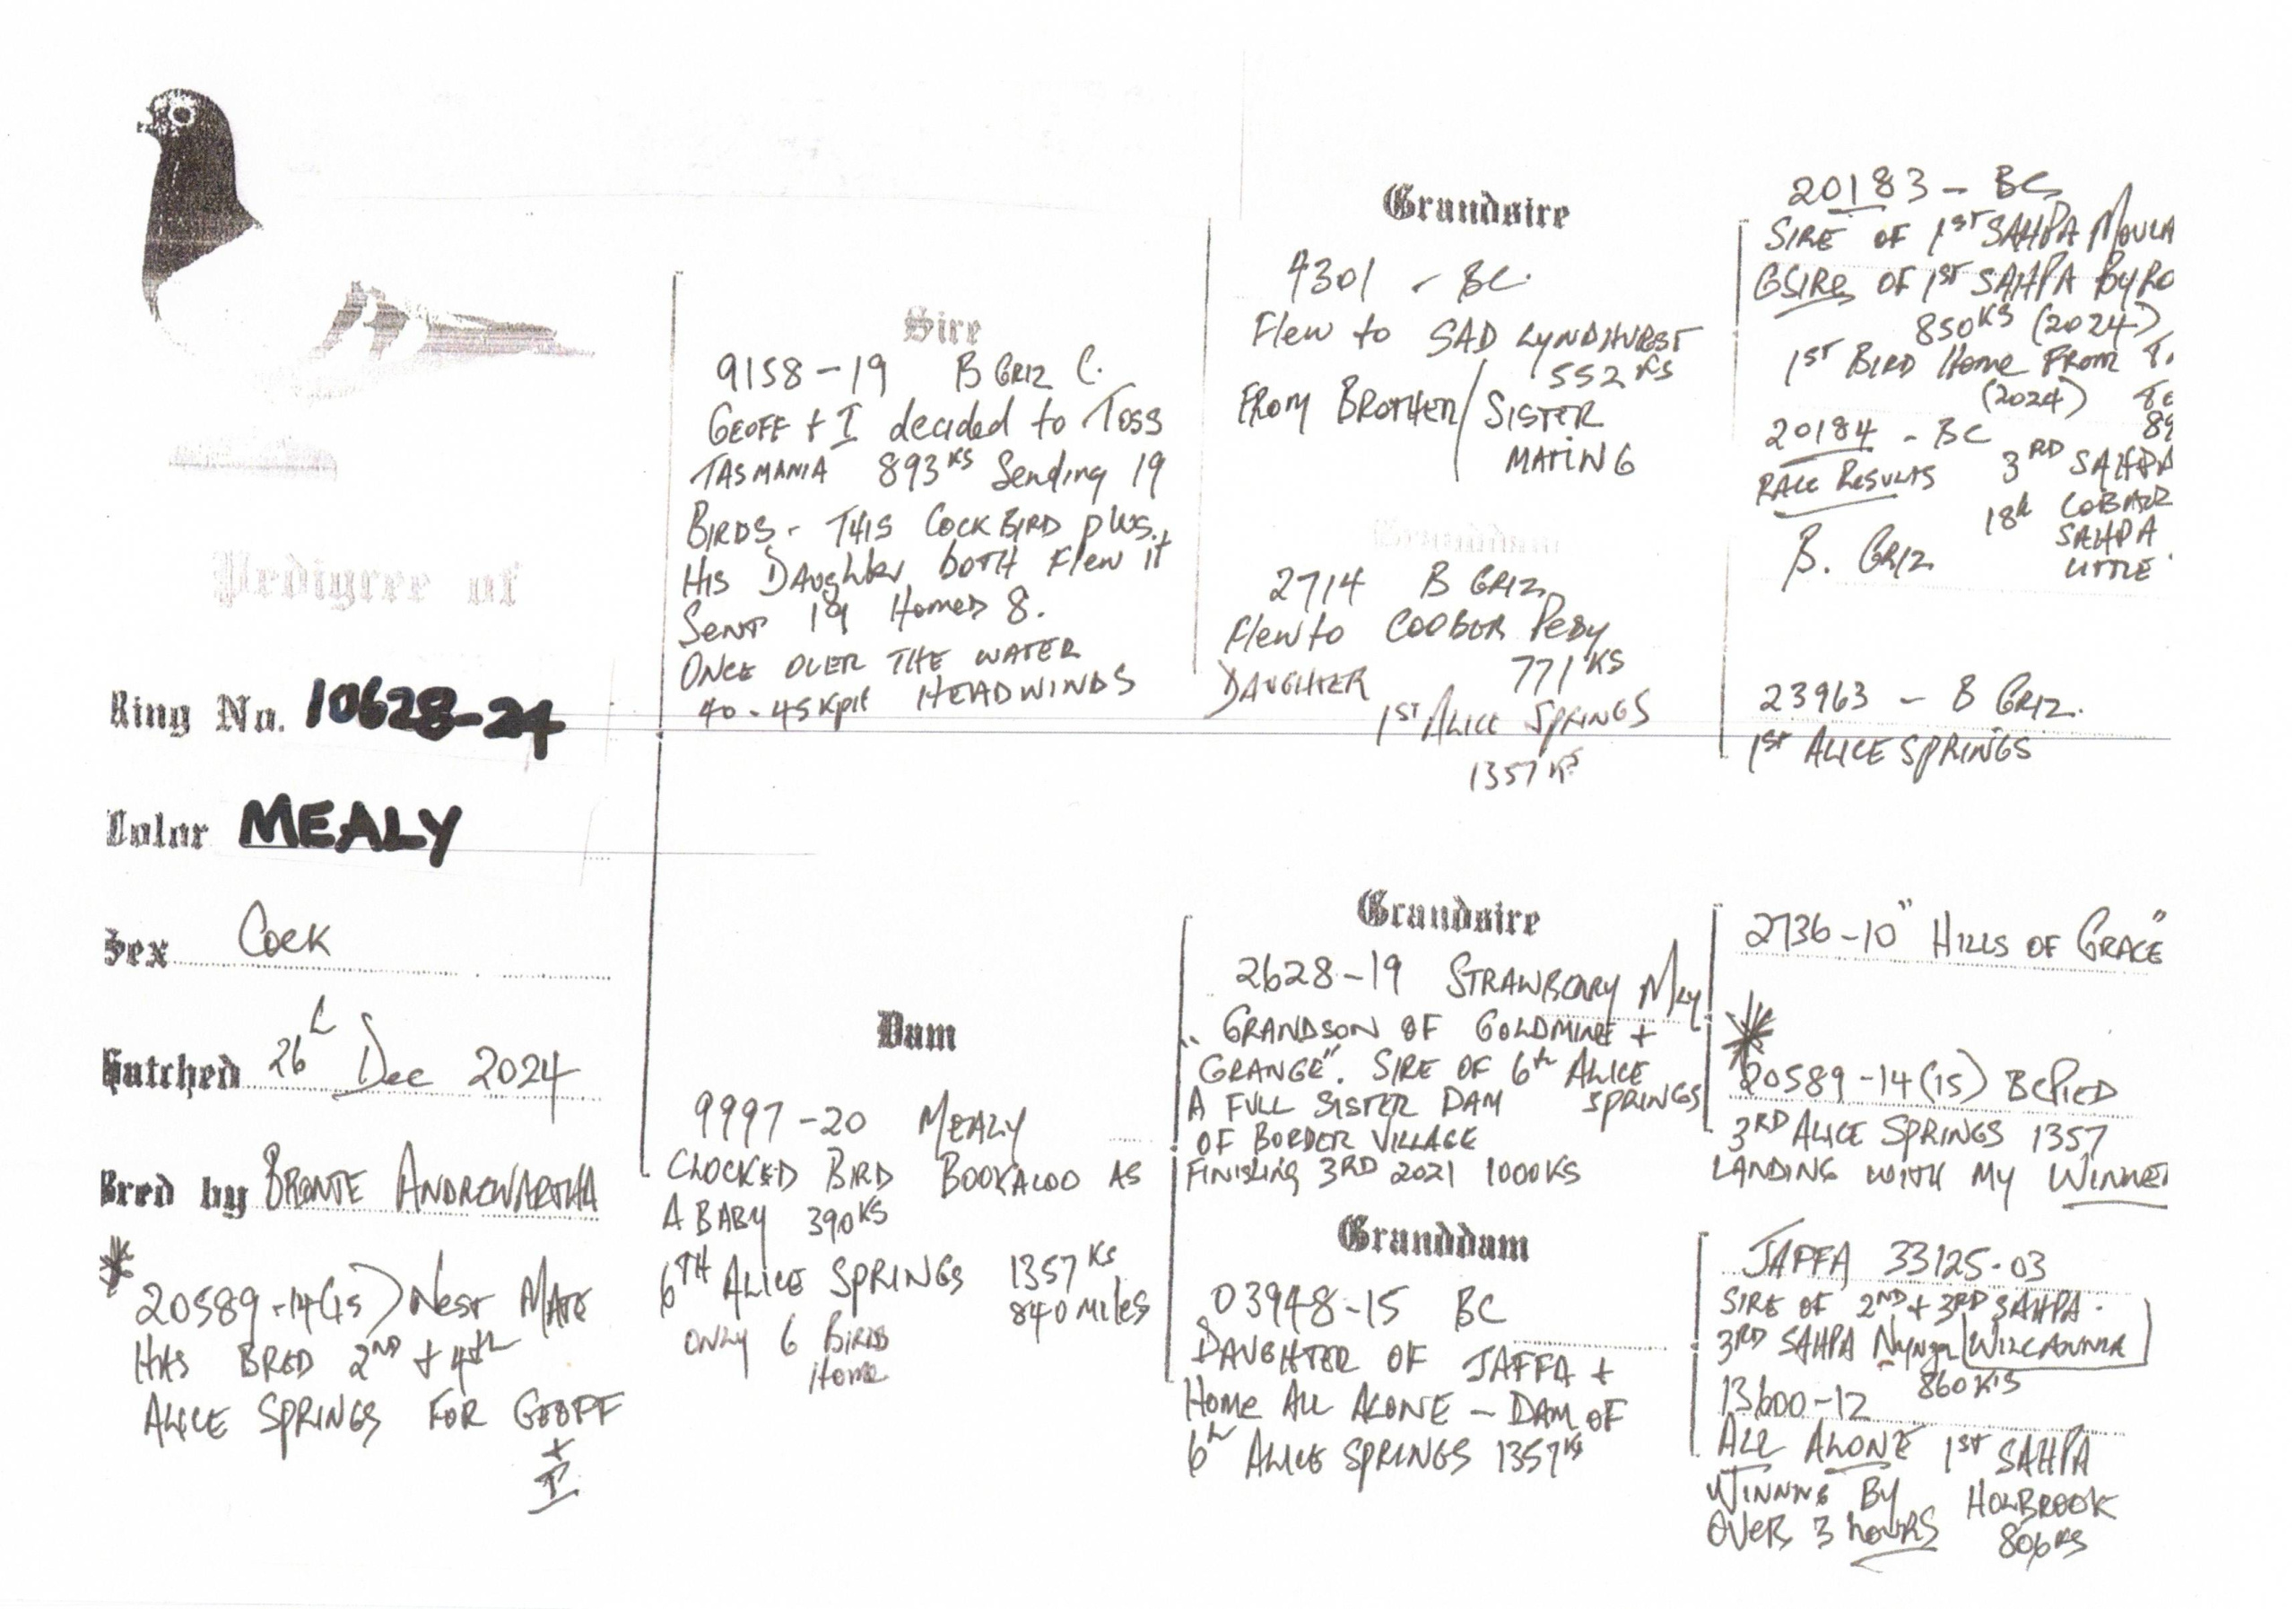 Pedigree of
Ring No. 10628-24
Color MEALY
Sex Cock
Hatched 26th Dec 2024
Bred by BRONTE ANDREWARTHA
* 20589-14(15) Nest MATE
HAS BRED 2ND + 4th
ALICE SPRINGS FOR GEOFF
+
I
Sire
9158-19 B GRIZ C.
GEOFF + I decided to TOSS
TASMANIA 893KS Sending 19
BIRDS - THIS COCK BIRD plus
His Daughter both Flew it
SENT 19 Homed 8.
ONCE OVER THE WATER
40-45KPH HEADWINDS
Dam
9997-20 MEALY
CLOCKED BIRD BOOKALOO AS
A BABY 390KS
6TH ALICE SPRINGS 1357KS
840 MILES
ONLY 6 BIRDS
Home
Grandsire
4301 - BC.
Flew to SAD LYNDHURST
552KS
FROM BROTHER/SISTER
MATING
Granddam
2714 B GRIZ
Flew to COOBER Pedy
771KS
DAUGHTER
1ST ALICE SPRINGS
1357KS
Grandsire
2628-19 STRAWBERRY Mly
"GRANDSON OF GOLDMINE +
GRANGE". SIRE OF 6th ALICE
SPRINGS
A FULL SISTER DAM
OF BORDER VILLAGE
Finishing 3RD 2021 1000KS
Granddam
03948-15 BC
DAUGHTER OF JAFFA +
Home ALL ALONE - DAM OF
6th ALICE SPRINGS 1357KS
20183 - BC
SIRE OF 1ST SAHPA
GSIRE OF 1ST SAHPA BYRO
850KS (2024)
1ST BIRD Home FROM
(2024)
89
20184 - BC
3RD SAHPA
RACE RESULTS
18th COBAR
SAHPA
LITTLE
B. GRIZ
23963 - B GRIZ.
1ST ALICE SPRINGS
2736-10 "HILLS OF GRACE"
*
20589-14(15) BCPIED
3RD ALICE SPRINGS 1357
LANDING WITH MY WINNER
JAFFA 33125-03
SIRE OF 2ND + 3RD SAHPA.
3RD SAHPA Nyngan WILCANNIA
860KS
13600-12
ALL ALONE 1ST SAHPA
WINNING BY HOLBROOK
OVER 3 hours 806KS